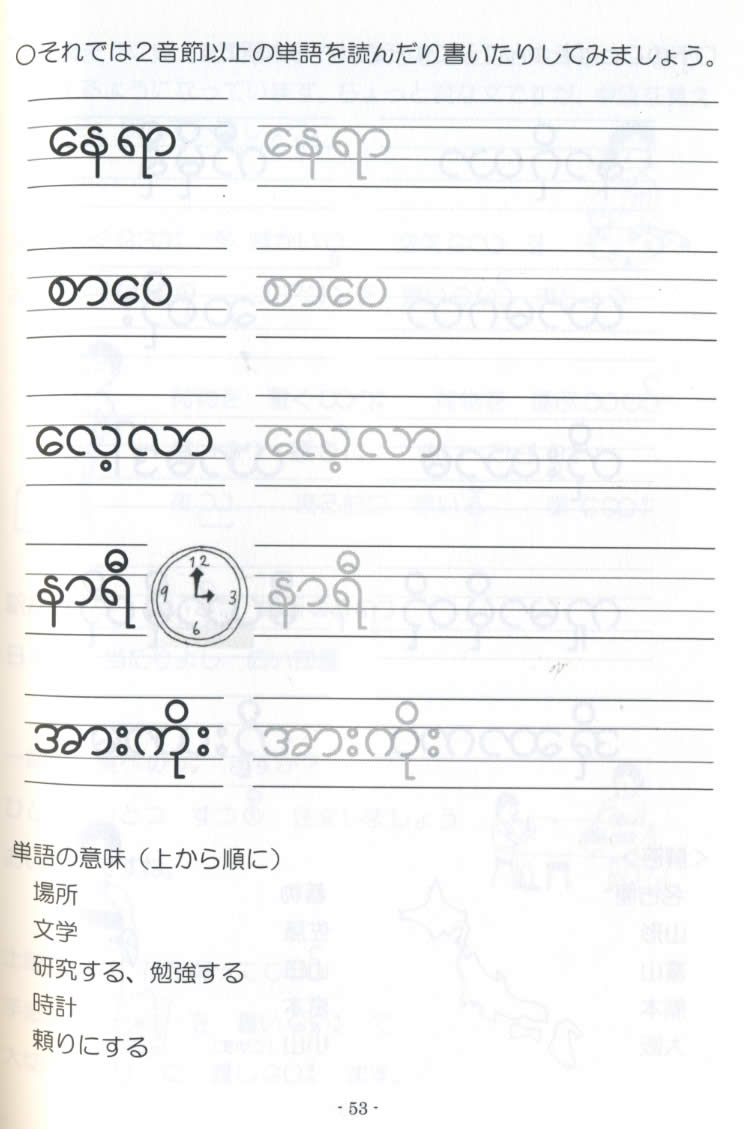 ○それでは2音節以上の単語を読んだり書いたりしてみましょう。
နေရာ နေရာ
စာပေ စာပေ
လေ့လာ လေ့လာ
နာရီ 12 3 6 9 နာရီ
အားကိုး အားကိုး
単語の意味（上から順に）
場所
文学
研究する、勉強する
時計
頼りにする
- 53 -